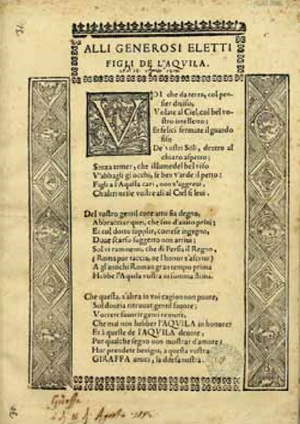 ALLI GENEROSI ELETTI
FIGLI DE L'AQVILA.
VOI che da terra, col pen-
sier diuiso,
Volate al Ciel, col bel vo-
stro intelletto;
Et felici fermate il guardo
fiso
De' vostri Soli, dentro al
chiaro aspetto;
Senza temer, che
V'abbagli gli occhi, se ben v'arde il petto:
Figli a l'Aquila cari, non v'aggreui,
Ch'altri ne le vostre ali al Ciel si leui.
Del vostro gentil core atto fia degno,
Abbracciar quei, che son d'animo
Et col dotto supplir, cortese ingegno,
Doue scarso suggetto non arriua;
Sol vi rammento, che di Persa, il Regno,
(Roma pur taccia, ne l'honor s'ascriua)
A gl'antichi Roman gran tempo prima
Hebbe l'Aquila vostra in somma stima.
Che questa, s'altra in voi cagion non puote,
Sol douria ritrouar gentil fauore;
Vorrete fauorir genti remote,
Che mai non hebber l'AQUILA in honore?
Et à queste de l'AQUILA deuote,
Per qualche segno non mostrar d'amore;
Hor prendete benigni, a questa vostra
GIRAFFA amici, la difesa nostra.
Giraffa